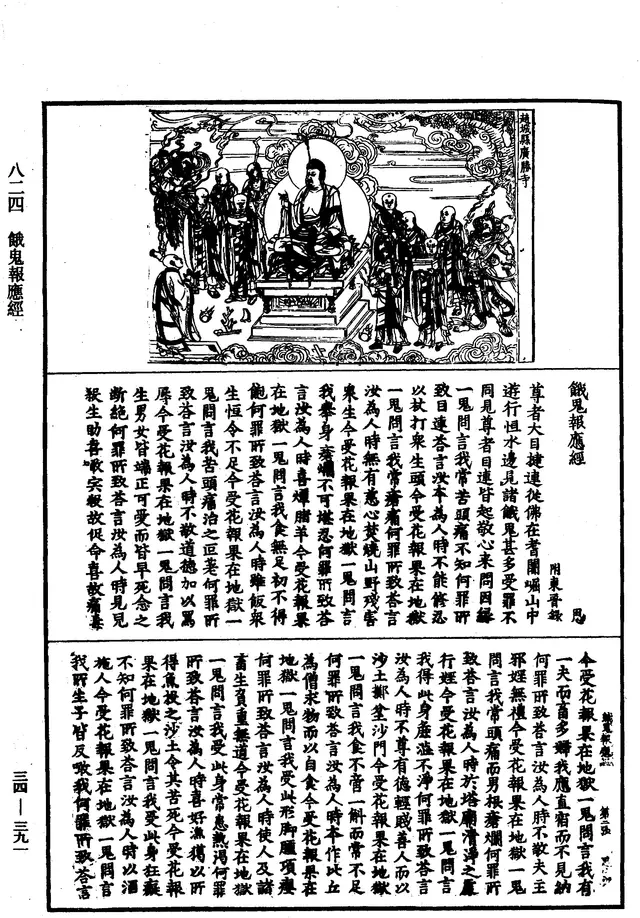 趙城縣廣勝寺
餓鬼報應經
附東晉錄 思
尊者大目揵連從佛在耆闍崛山中
遊行恒水邊見諸餓鬼甚多受罪不
同見尊者目連皆起敬心來問因緣
一鬼問言我常苦頭痛不知何罪所
致目連答言汝本為人時不能修忍
以杖打衆生頭今受花報果在地獄
一鬼問言我常瘡痛何罪所致答言
汝為人時無有慈心焚燒山野殘害
衆生今受花報果在地獄一鬼問言
我舉身瘡爛不可堪忍何罪所致答
言汝為人時喜燖猪羊今受花報果
在地獄一鬼問言我食無足初不得
飽何罪所致答言汝為人時雖飯衆
生恒令不足今受花報果在地獄一
鬼問言我苦頭痛治之叵差何罪所
致答言汝為人時不敬道德加以罵
辱今受花報果在地獄一鬼問言我
生男女皆端正可愛而皆早死念之
斷絕何罪所致答言汝為人時見兒
殺生助喜歌完殺故促命喜故痛毒
今受花報果在地獄一鬼問言我有
一夫而畜多婦我應直宿而不見納
何罪所致答言汝為人時不敬夫主
邪婬無禮今受花報果在地獄一鬼
問言我常頭痛而男根瘡爛何罪所
致答言汝為人時於塔廟清淨之處
行婬今受花報果在地獄一鬼問言
我得此身虛溢不淨何罪所致答言
汝為人時不尊有德輕賤善人而以
沙土擲坌沙門今受花報果在地獄
一鬼問言我食不啻一斛而常不足
何罪所致答言汝為人時本作比丘
為僧求物而以自食今受花報果在
地獄一鬼問言我受此形脚腫項癭
何罪所致答言汝為人時使人及諸
畜生負重無道今受花報果在地獄
一鬼問言我受此身常患熱渴何罪
所致答言汝為人時喜好漁獵以所
得魚投之沙土令其苦死今受花報
果在地獄一鬼問言我受此身狂癡
不知何罪所致答言汝為人時以酒
施人今受花報果在地獄一鬼問言
我所生子皆反噉我何罪所致答言
八二四 餓鬼報應經
三四—三九一